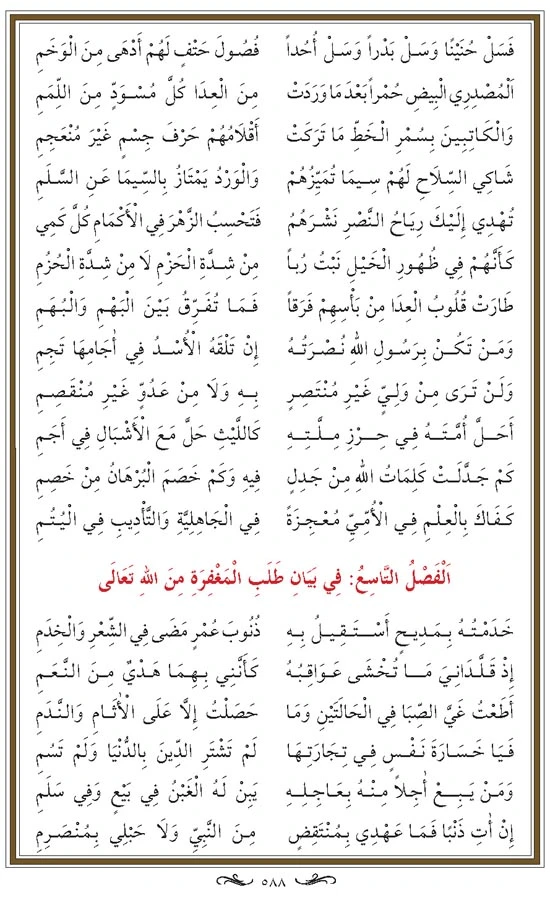 فَسَلْ حُنَيْنًا وَسَلْ بَدْراً وَسَلْ أُحُداً فُصُولَ حَتْفٍ لَهُمْ أَدْهَى مِنَ الْوَخَمِ
اَلْمُصْدِرِي الْبِيضِ حُمْراً بَعْدَ مَا وَرَدَتْ مِنَ الْعِدَا كُلَّ مُسْوَدٍّ مِنَ اللِّمَمِ
وَالْكَاتِبِينَ بِسُمْرِ الْخَطِّ مَا تَرَكَتْ أَقْلَامُهُمْ حَرْفَ جِسْمٍ غَيْرَ مُنْعَجِمِ
شَاكِي السِّلَاحِ لَهُمْ سِيمَا تُمَيِّزُهُمْ وَالْوَرْدُ يَمْتَازُ بِالسِّيمَا عَنِ السَّلَمِ
تُهْدِي إِلَيْكَ رِيَاحُ النَّصْرِ نَشْرَهُمُ فَتَحْسِبُ الزَّهْرَ فِي الْأَكْمَامِ كُلَّ كَمِي
كَأَنَّهُمْ فِي ظُهُورِ الْخَيْلِ نَبْتُ رُباً مِنْ شِدَّةِ الْحَزْمِ لَا مِنْ شِدَّةِ الْحُزُمِ
طَارَتْ قُلُوبُ الْعِدَا مِنْ بَأْسِهِمْ فَرَقاً فَمَا تُفَرِّقُ بَيْنَ الْبَهْمِ وَالْبُهَمِ
وَمَنْ تَكُنْ بِرَسُولِ اللهِ نُصْرَتُهُ إِنْ تَلْقَهُ الْأُسْدُ فِي أٰجَامِهَا تَجِمِ
وَلَنْ تَرَى مِنْ وَلِيٍّ غَيْرِ مُنْتَصِرٍ بِهِ وَلَا مِنْ عَدُوٍّ غَيْرِ مُنْقَصِمِ
أَحَلَّ أُمَّتَهُ فِي حِرْزِ مِلَّتِهِ كَاللَّيْثِ حَلَّ مَعَ الْأَشْبَالِ فِي أَجَمِ
كَمْ جَدَّلَتْ كَلِمَاتُ اللهِ مِنْ جَدِلٍ فِيهِ وَكَمْ خَصَمَ الْبُرْهَانُ مِنْ خَصِمِ
كَفَاكَ بِالْعِلْمِ فِي الْأُمِّيِّ مُعْجِزَةً فِي الْجَاهِلِيَّةِ وَالتَّأْدِيبِ فِي الْيُتُمِ
اَلْفَصْلُ التَّاسِعُ: فِي بَيَانِ طَلَبِ الْمَغْفِرَةِ مِنَ اللهِ تَعَالَى
خَدَمْتُهُ بِمَدِيحٍ أَسْتَقِيلُ بِهِ ذُنُوبَ عُمْرٍ مَضَى فِي الشِّعْرِ وَالْخِدَمِ
إِذْ قَلَّدَانِيَ مَا تُخْشَى عَوَاقِبُهُ كَأَنَّنِي بِهِمَا هَدْيٌ مِنَ النَّعَمِ
أَطَعْتُ غَيَّ الصِّبَا فِي الْحَالَتَيْنِ وَمَا حَصَلْتُ إِلَّا عَلَى الْأٰثَامِ وَالنَّدَمِ
فَيَا خَسَارَةَ نَفْسٍ فِي تِجَارَتِهَا لَمْ تَشْتَرِ الدِّينَ بِالدُّنْيَا وَلَمْ تَسُمِ
وَمَنْ يَبِعْ أٰجِلاً مِنْهُ بِعَاجِلِهِ يَبِنْ لَهُ الْغَبْنُ فِي بَيْعٍ وَفِي سَلَمِ
إِنْ أٰتِ ذَنْبًا فَمَا عَهْدِي بِمُنْتَقِضٍ مِنَ النَّبِيِّ وَلَا حَبْلِي بِمُنْصَرِمِ
٥٨٨